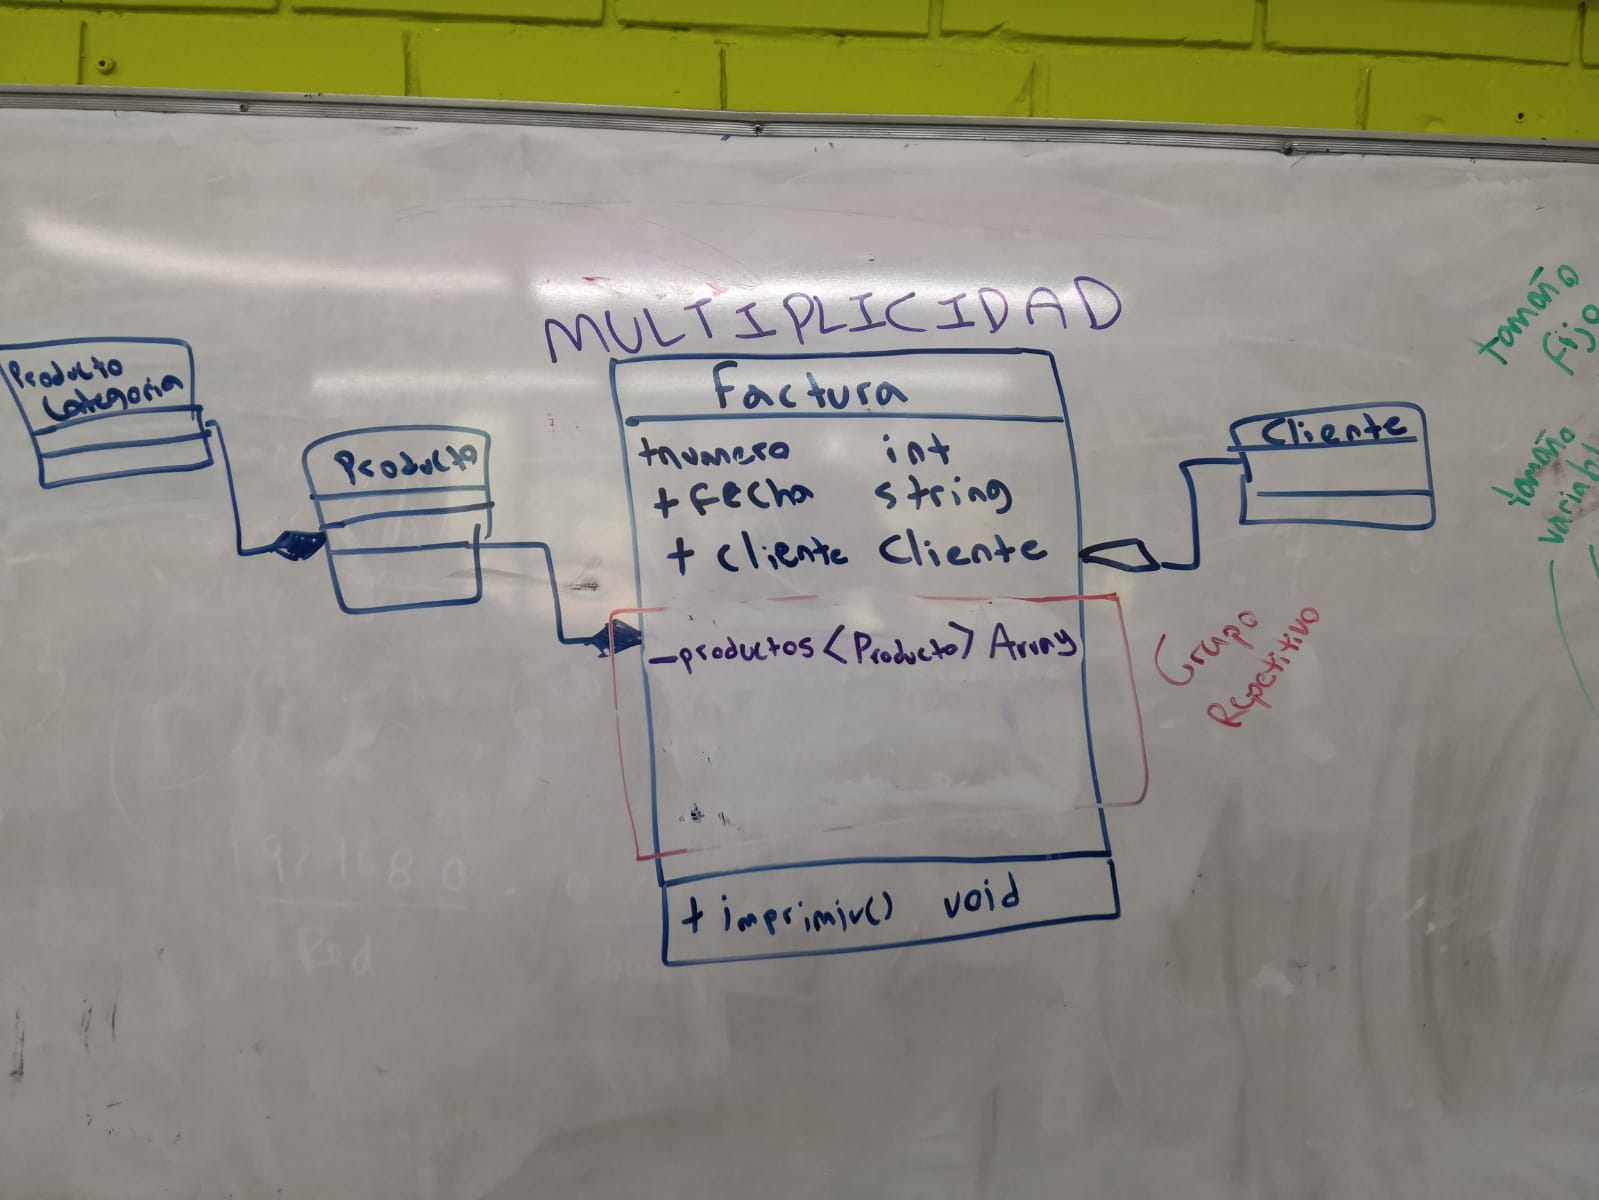 MULTIPLICIDAD
Producto
Categoria
Producto
Factura
+numero int
+ fecha string
+ cliente Cliente
- productos <Producto> Array
+ imprimir() void
Cliente
Grupo
Repetitivo
tamaño
Fijo
tamaño
Red